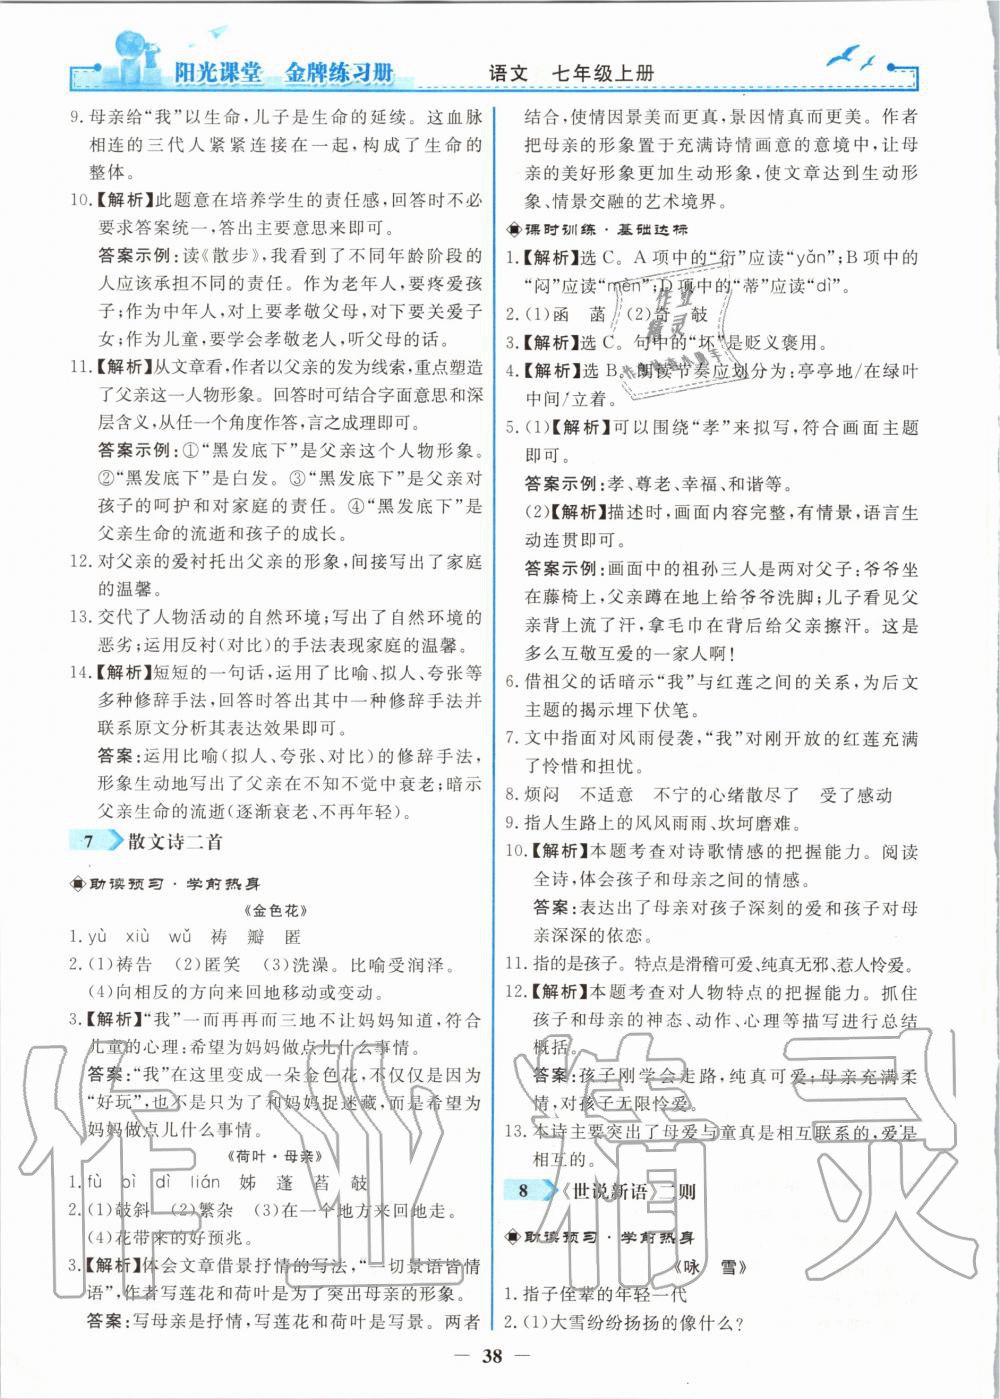 阳光课堂 金牌练习册
语文 七年级上册
9. 母亲给“我”以生命,儿子是生命的延续。这血脉
相连的三代人紧紧连接在一起,构成了生命的
整体。
10.【解析】此题意在培养学生的责任感,回答时不必
要求答案统一,答出主要意思来即可。
答案示例:读《散步》,我看到了不同年龄阶段的
人应该承担不同的责任。作为老年人,要疼爱孩
子;作为中年人,对上要孝敬父母,对下要关爱子
女;作为儿童,要学会孝敬老人,听父母的话。
11.【解析】从文章看,作者以父亲的发为线索,重点塑造
了父亲这一人物形象。回答时可结合字面意思和深
层含义,从任一个角度作答,言之成理即可。
答案示例:①“黑发底下”是父亲这个人物形象。
②“黑发底下”是白发。③“黑发底下”是父亲对
孩子的呵护和对家庭的责任。④“黑发底下”是
父亲生命的流逝和孩子的成长。
12. 对父亲的爱衬托出父亲的形象,间接写出了家庭
的温馨。
13. 交代了人物活动的自然环境;写出了自然环境的
恶劣;运用反衬(对比)的手法表现家庭的温馨。
14.【解析】短短的一句话,运用了比喻、拟人、夸张等
多种修辞手法,回答时答出其中一种修辞手法并
联系原文分析其表达效果即可。
答案:运用比喻(拟人、夸张、对比)的修辞手法,
形象生动地写出了父亲在不知不觉中衰老;暗示
父亲生命的流逝(逐渐衰老、不再年轻)。
7 散文诗二首
助读预习·学前热身
《金色花》
1. yù xiù wǔ 祷 瓣 匿
2. (1)祷告 (2)匿笑 (3)洗澡。比喻受润泽。
(4)向相反的方向来回地移动或变动。
3.【解析】“我”一而再再而三地不让妈妈知道,符合
儿童的心理;希望为妈妈做点儿什么事情。
答案:“我”在这里变成一朵金色花,不仅仅是因为
“好玩”,也不只是为了和妈妈捉迷藏,而是希望为
妈妈做点儿什么事情。
《荷叶·母亲》
1. fù bì dì lián 姊 蓬 菡 攲
2. (1)攲斜 (2)繁杂 (3)在一个地方来回地走。
(4)花带来的好预兆。
3.【解析】体会文章借景抒情的写法,“一切景语皆情
语”,作者写莲花和荷叶是为了写出母亲的形象。
答案:写母亲是抒情,写莲花和荷叶是写景。两者
结合,使情因景美而更真,景因情真而更美。作者
把母亲的形象置于充满诗情画意的意境中,让母
亲的美好形象更加生动形象,使文章达到生动形
象、情景交融的艺术境界。
课时训练·基础达标
1.【解析】选 C。A 项中的“衍”应读“yǎn”;B 项中的
“闷”应读“mèn”;D 项中的“蒂”应读“dì”。
2. (1)菡 菡 (2)奇 攲
3.【解析】选 C。句中的“坏”是贬义褒用。
4.【解析】选 B。朗读节奏应划分为:亭亭地/在绿叶
中间/立着。
5. (1)【解析】可以围绕“孝”来拟写,符合画面主题
即可。
答案示例:孝、尊老、幸福、和谐等。
(2)【解析】描述时,画面内容完整,有情景,语言生
动连贯即可。
答案示例:画面中的祖孙三人是两对父子:爷爷坐
在藤椅上,父亲蹲在地给爷爷洗脚;儿子看见父
亲背上流了汗,拿毛巾在背后给父亲擦汗。这是
多么互敬互爱的一家人啊!
6. 借祖父的话暗示“我”与红莲之间的关系,为后文
主题的揭示埋下伏笔。
7. 文中指面对风雨侵袭,“我”对刚开放的红莲充满
了怜惜和担忧。
8. 烦闷 不适意 不宁的心绪散尽了 受了感动
9. 指人生路上的风风雨雨、坎坷磨难。
10.【解析】本题考查对诗歌情感的把握能力。阅读
全诗,体会孩子和母亲之间的情感。
答案:表达出了母亲对孩子深刻的爱和孩子对母
亲深深的依恋。
11. 指的是孩子。特点是滑稽可爱、纯真无邪、惹人怜爱。
12.【解析】本题考查对人物特点的把握能力。抓住
孩子和母亲的神态、动作、心理等描写进行总结
概括。
答案:孩子刚学会走路,纯真可爱;母亲充满柔
情,对孩子无限怜爱。
13. 本诗主要突出了母爱与童真是相互联系的,爱是
相互的。
8 《世说新语》二则
助读预习·学前热身
《咏 雪》
1. 指子侄辈的年轻一代
2. (1)大雪纷纷扬扬的像什么?
38
作业精灵